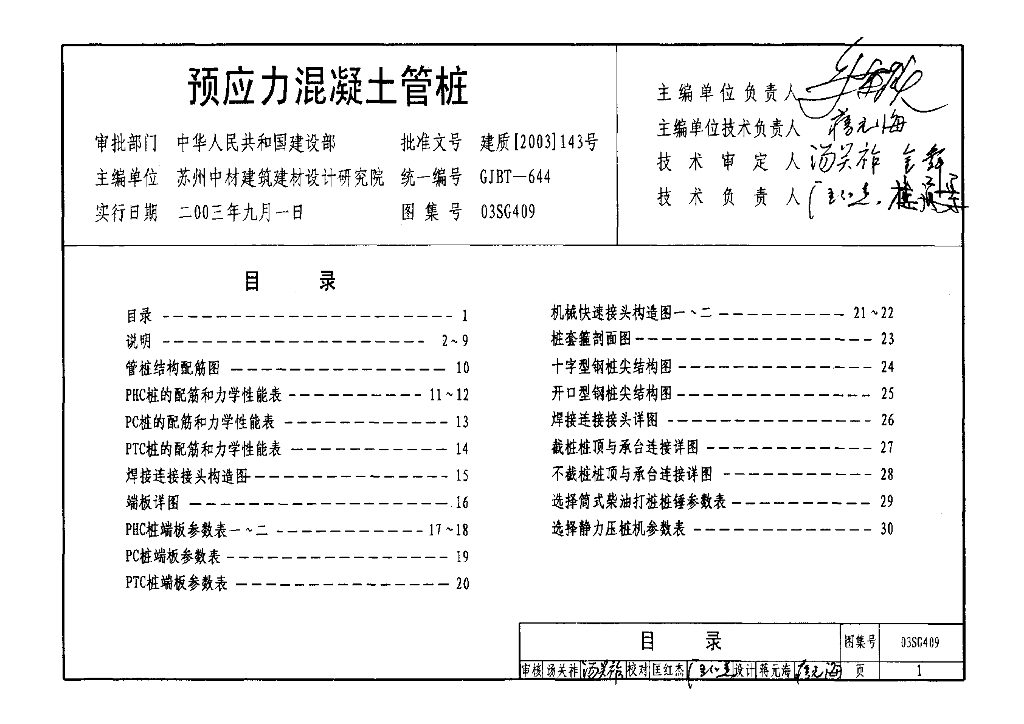 预应力混凝土管桩
审批部门 中华人民共和国建设部 批准文号 建质[2003]143号
主编单位 苏州中材建筑建材设计研究院 统一编号 GJBT—644
实行日期 二00三年九月一日 图集号 03SG409
主编单位负责人
主编单位技术负责人 蒋元海
技术审定人 汤关祚
技术负责人
目 录
目录 1
说明 2~9
管桩结构配筋图 10
PHC桩的配筋和力学性能表 11~12
PC桩的配筋和力学性能表 13
PTC桩的配筋和力学性能表 14
焊接连接接头构造图 15
端板详图 16
PHC桩端板参数表一~二 17~18
PC桩端板参数表 19
PTC桩端板参数表 20
机械快速接头构造图一、二 21~22
桩套箍剖面图 23
十字型钢桩尖结构图 24
开口型钢桩尖结构图 25
焊接连接接头详图 26
截桩桩顶与承台连接详图 27
不截桩桩顶与承台连接详图 28
选择筒式柴油打桩桩锤参数表 29
选择静力压桩机参数表 30
目 录 图集号 03SG409
审核 汤关祚 汤关祚 校对 匡红杰 设计 蒋元海 蒋元海 页 1